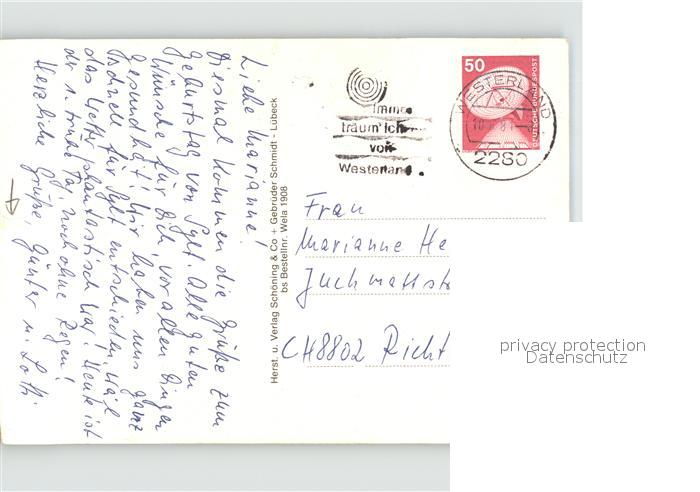 Liebe Marianne!
Diesmal kommen die Grüße zum
Geburtstag von Sylt. Alle guten
Wünsche für Dich, vor allen Dingen
Gesundheit! Wir haben uns ganz
schnell für Sylt entschieden, weil
das Wetter phantastisch war. Heute ist
der 1. trübe Tag, noch ohne Regen!
Herzliche Grüße, Günter u. Lotti.
Herst. u. Verlag Schöning & Co + Gebrüder Schmidt - Lübeck
bs Bestellnr. Wela 1908
immer
träum' ich
von
Westerland
50
DEUTSCHE BUNDESPOST
WESTERLAND
2280
Frau
Marianne He
Juchmattstr
CH 8802 Richt
privacy protection
Datenschutz